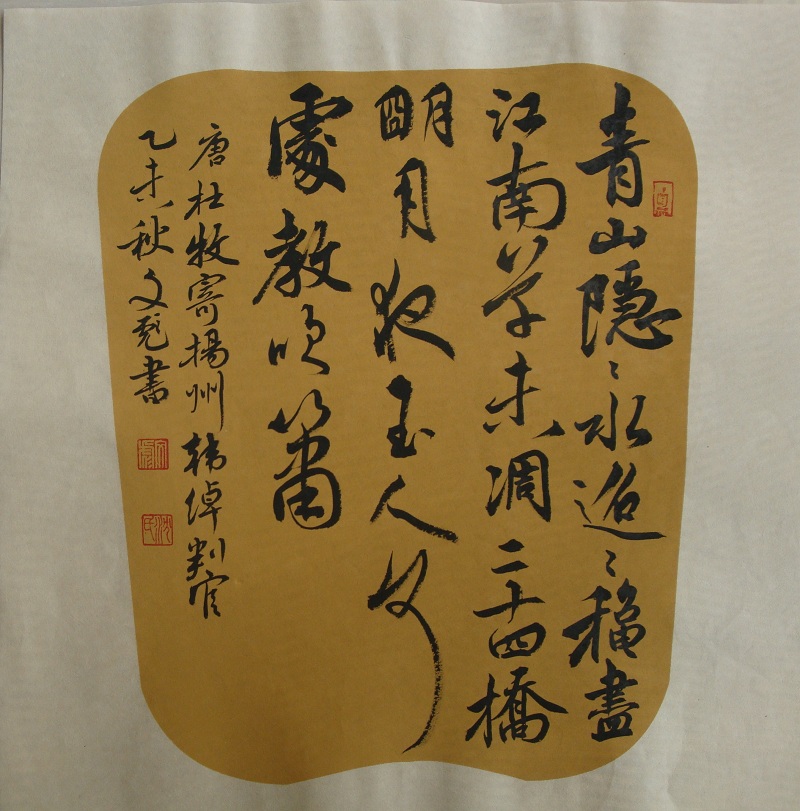 青山隐〻水迢〻穐盡
江南草未凋二十四橋
朙月夜玉人何
處教吹簫
唐杜牧寄揚州韩绰判官
乙未秋文彪書